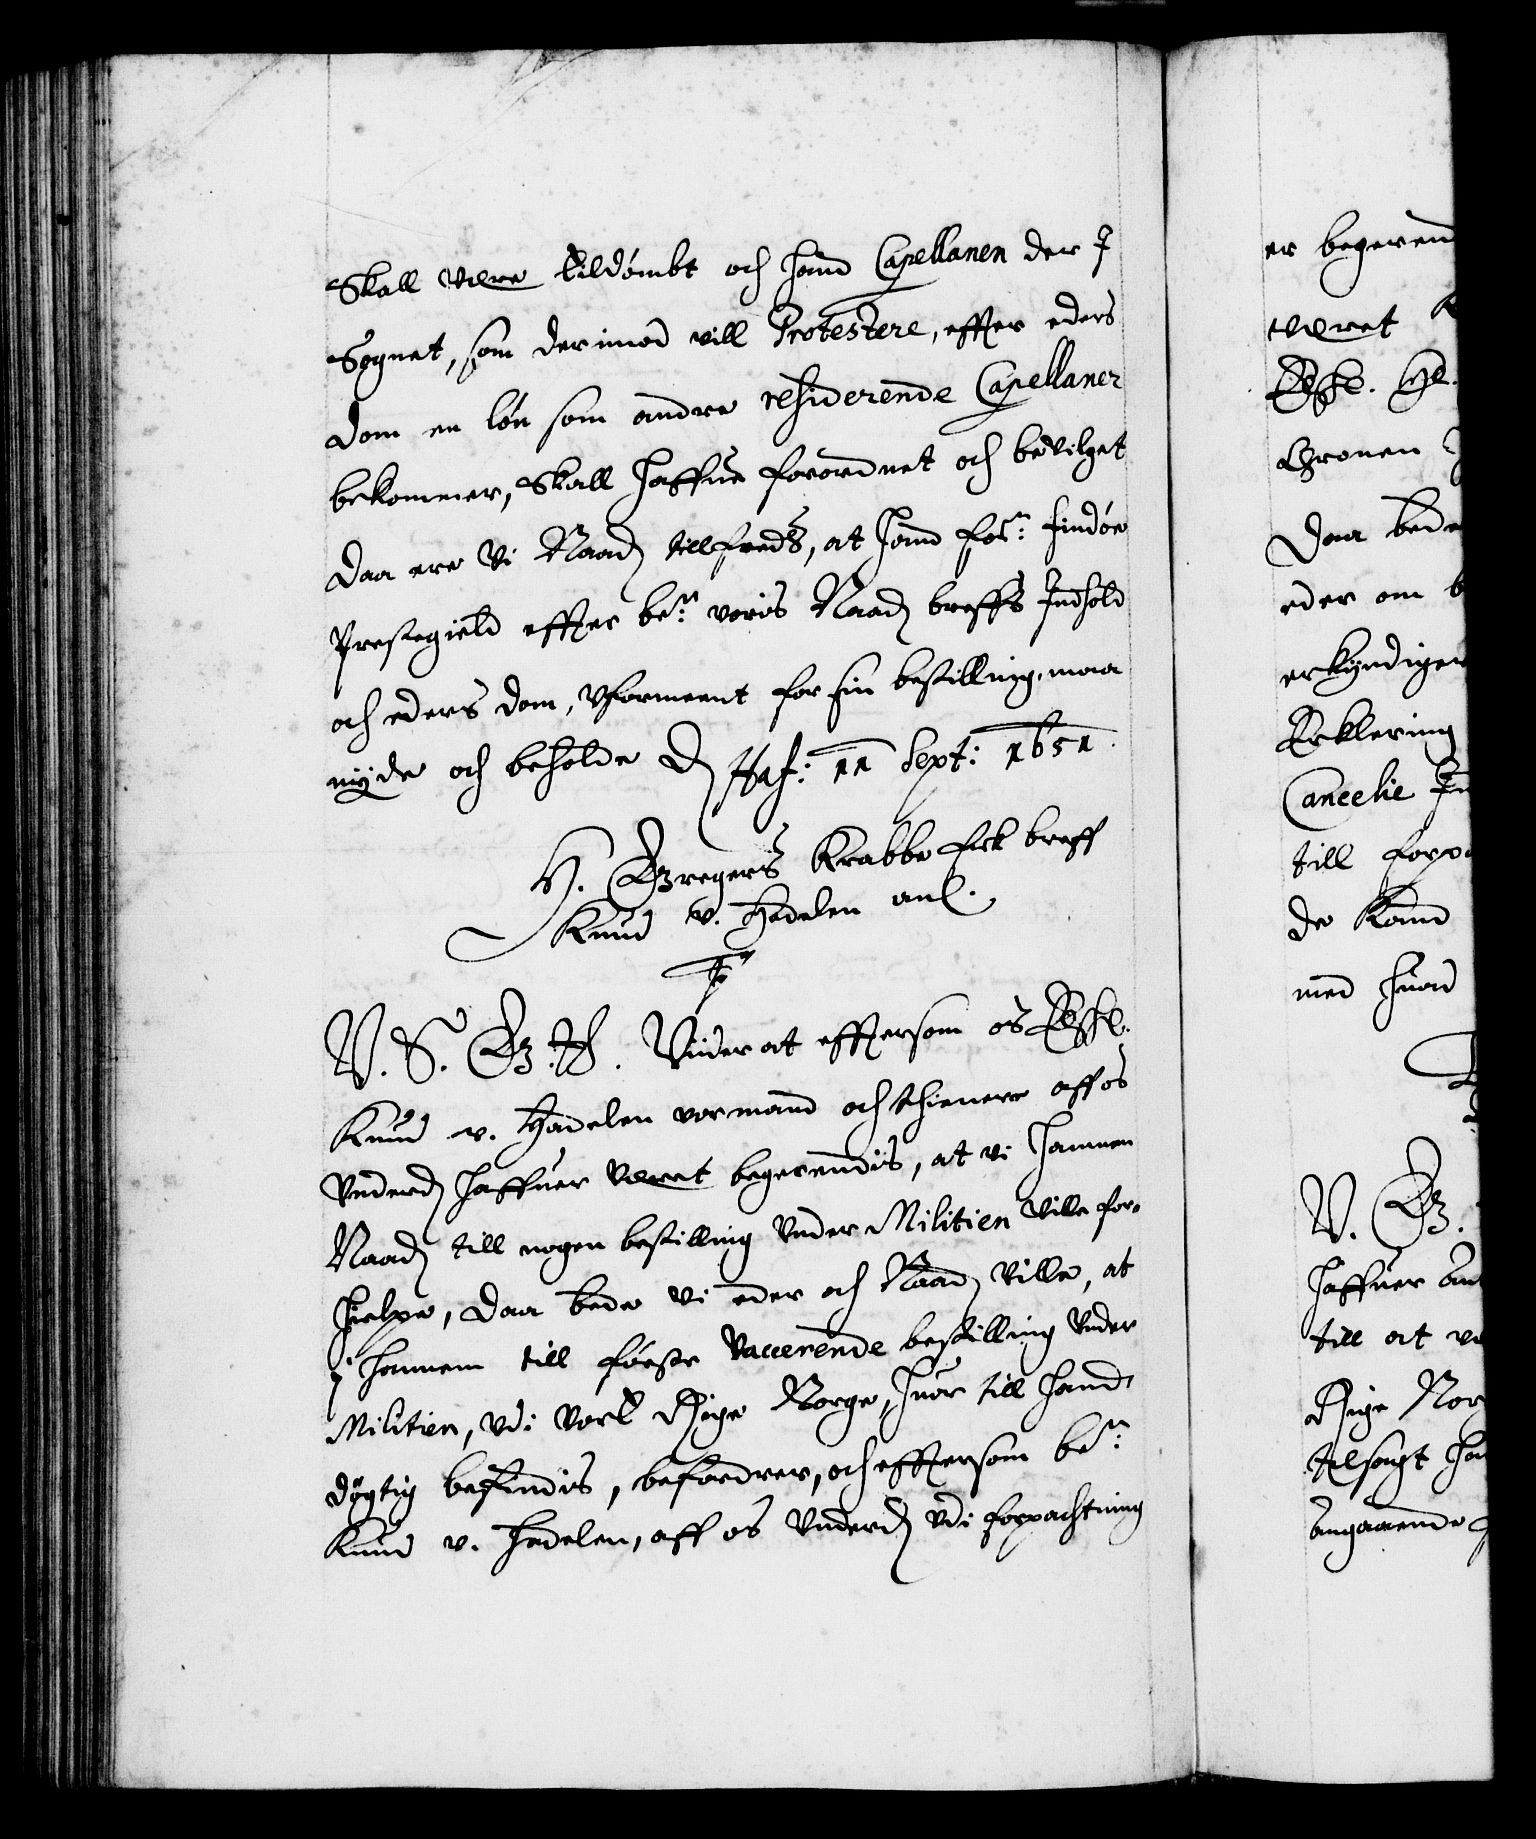 Skall være tildömbt och hand Capellanen der J
Sognet, som derimod vill Protestere, effter eders
dom en lön som andre residerende Capellaner
bekommer, Skall haffue forordnet och bevilget
daa ere Vi Naad: tillfreds, at hand for:ne Findöe
Prestegield effter be:te voris Naad: breffs Jndhold
och eders dom, Uformeent for sin bestilling, maa
nyde och beholde D Haf: 11 Sept: 1651.
H. Gregers Krabbe fik breff
Knud v. Hadelen anl.
F3
V. S. G. T. Viider at efftersom os Elskel.
Knud v. Hadelen vor mand och thienere aff os
Underd: haffuer været begerendis, at vi hannem
Naad: till nogen bestilling under Militien ville for-
hielpe, daa bede Vi eder och Naad: ville, at
j hannem till förste Vacerende bestilling under
Militien, udi vort Rige Norge, huor till hand
dögtig befindis, befordrer, och efftersom be:te
Knud v. Hadelen, aff os Underd: udi forpachtning
er begerend
været
Elskel. H.
Cronen
Daa bede
eder om b
erkyndiger
Erklering
Cancelie In
till forpa
de Kand
med huad
V. G.
haffuer an
till at v
Rige Nor
tilsagt ha
angaaende